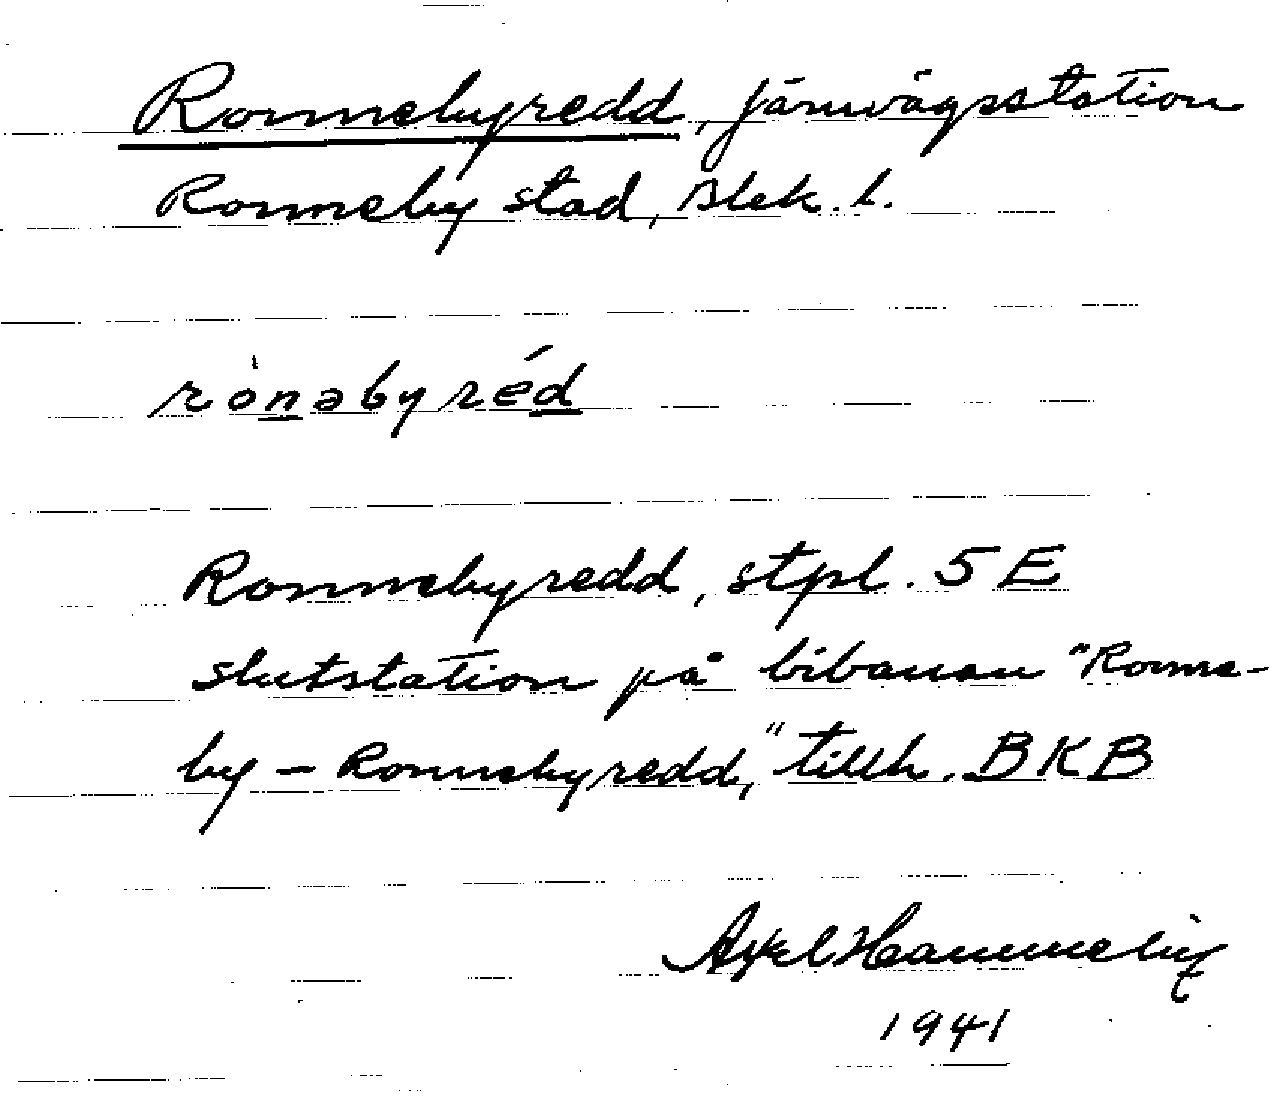 Ronnebyredd, järnvägsstation
Ronneby stad, Blek. l.
rònəbyréd
Ronnebyredd, stpl. 5 E
slutstation på bibanan "Ronne-
by – Ronnebyredd," tillh. BKB
Axel
1941